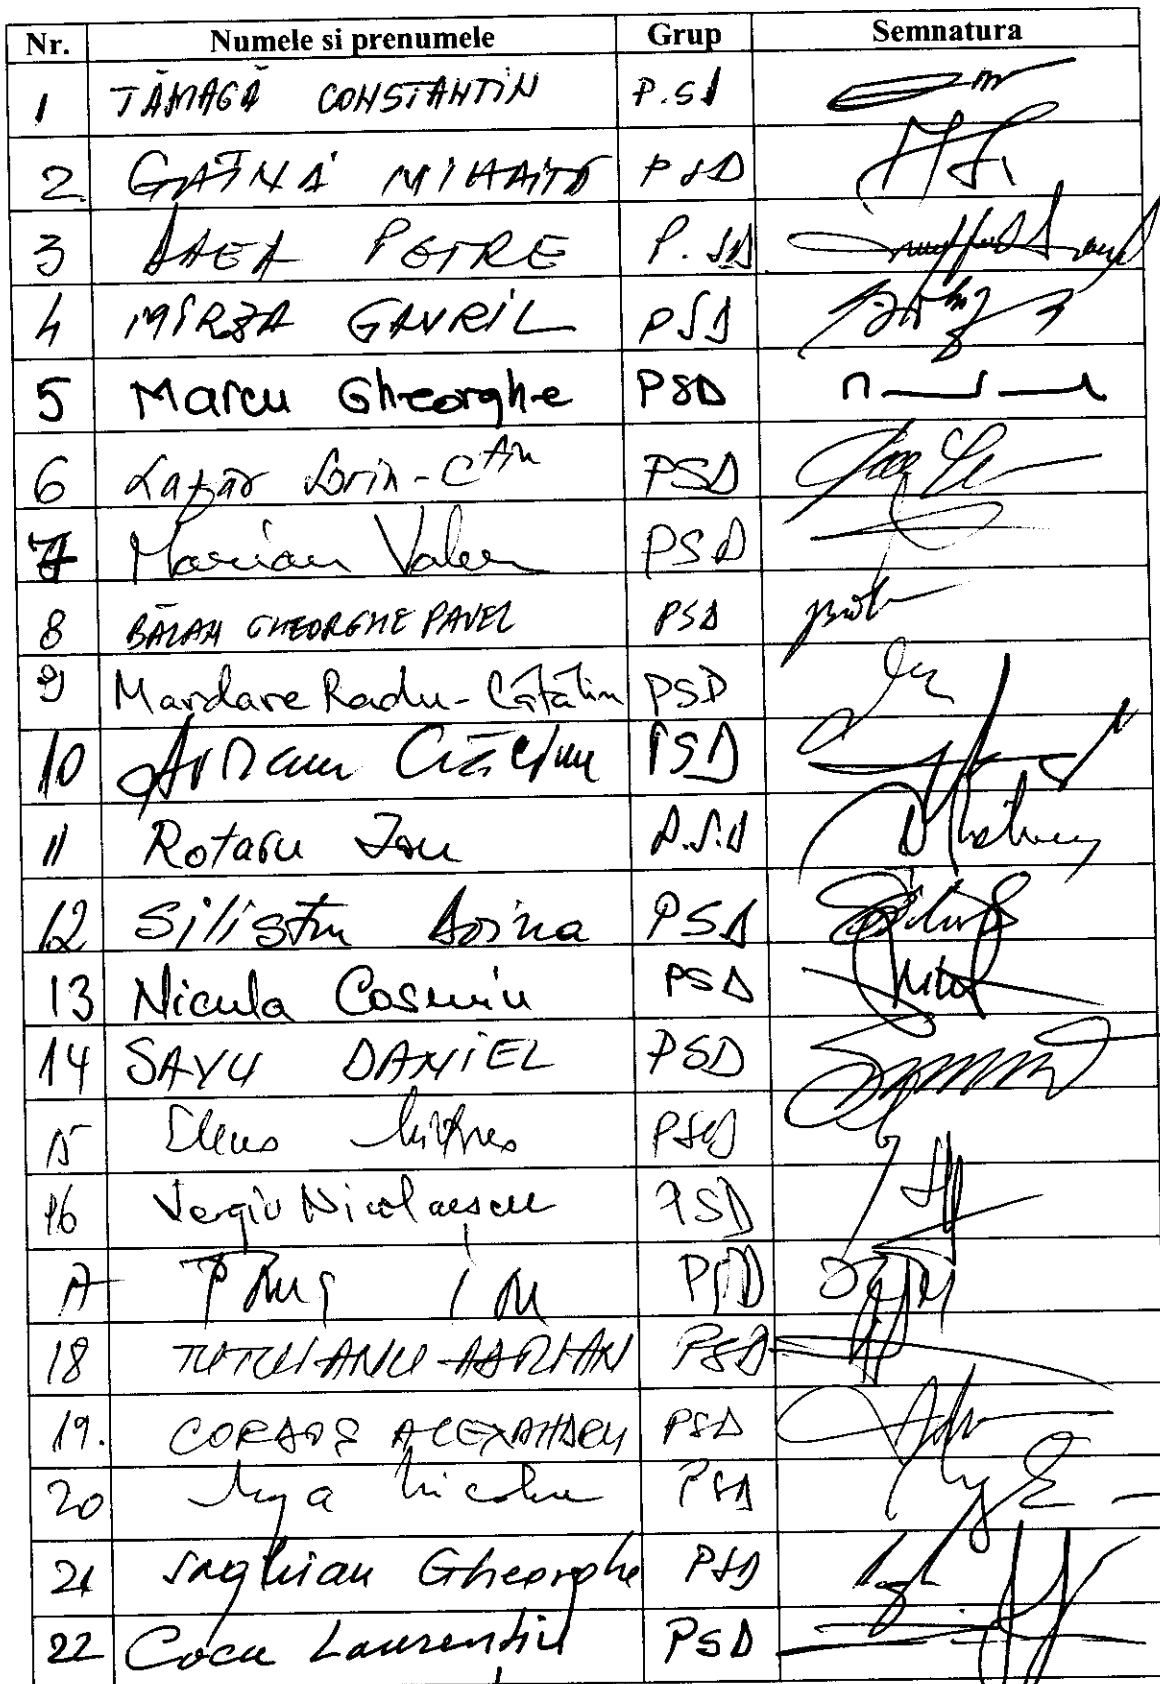 Nr. Numele si prenumele Grup Semnatura
1 TĂMAGĂ CONSTANTIN P.SD
2 GAINĂ MIHAIȚĂ PSD
3 DAEA PETRE P.SD
4 MÎRZA GAVRIL PSD
5 Marcu Gheorghe PSD
6 Lazăr Sorin-Ctin PSD
7 Marian Valer PSD
8 BĂLAN GHEORGHE PAVEL PSD
9 Mardare Radu-Cătălin PSD
10 PSD
11 Rotaru Ion P.S.D
12 Silistru Doina PSD
13 Nicula Cosmin PSD
14 SAVU DANIEL PSD
15 PSD
16 Sergiu Nicolaescu PSD
17 PSD
18 TUTUIANU ADRIAN PSD
19. CORDOȘ ALEXANDRU PSD
20 Nicolae PSD
21 Saghian Gheorghe PSD
22 Coca Laurențiu PSD